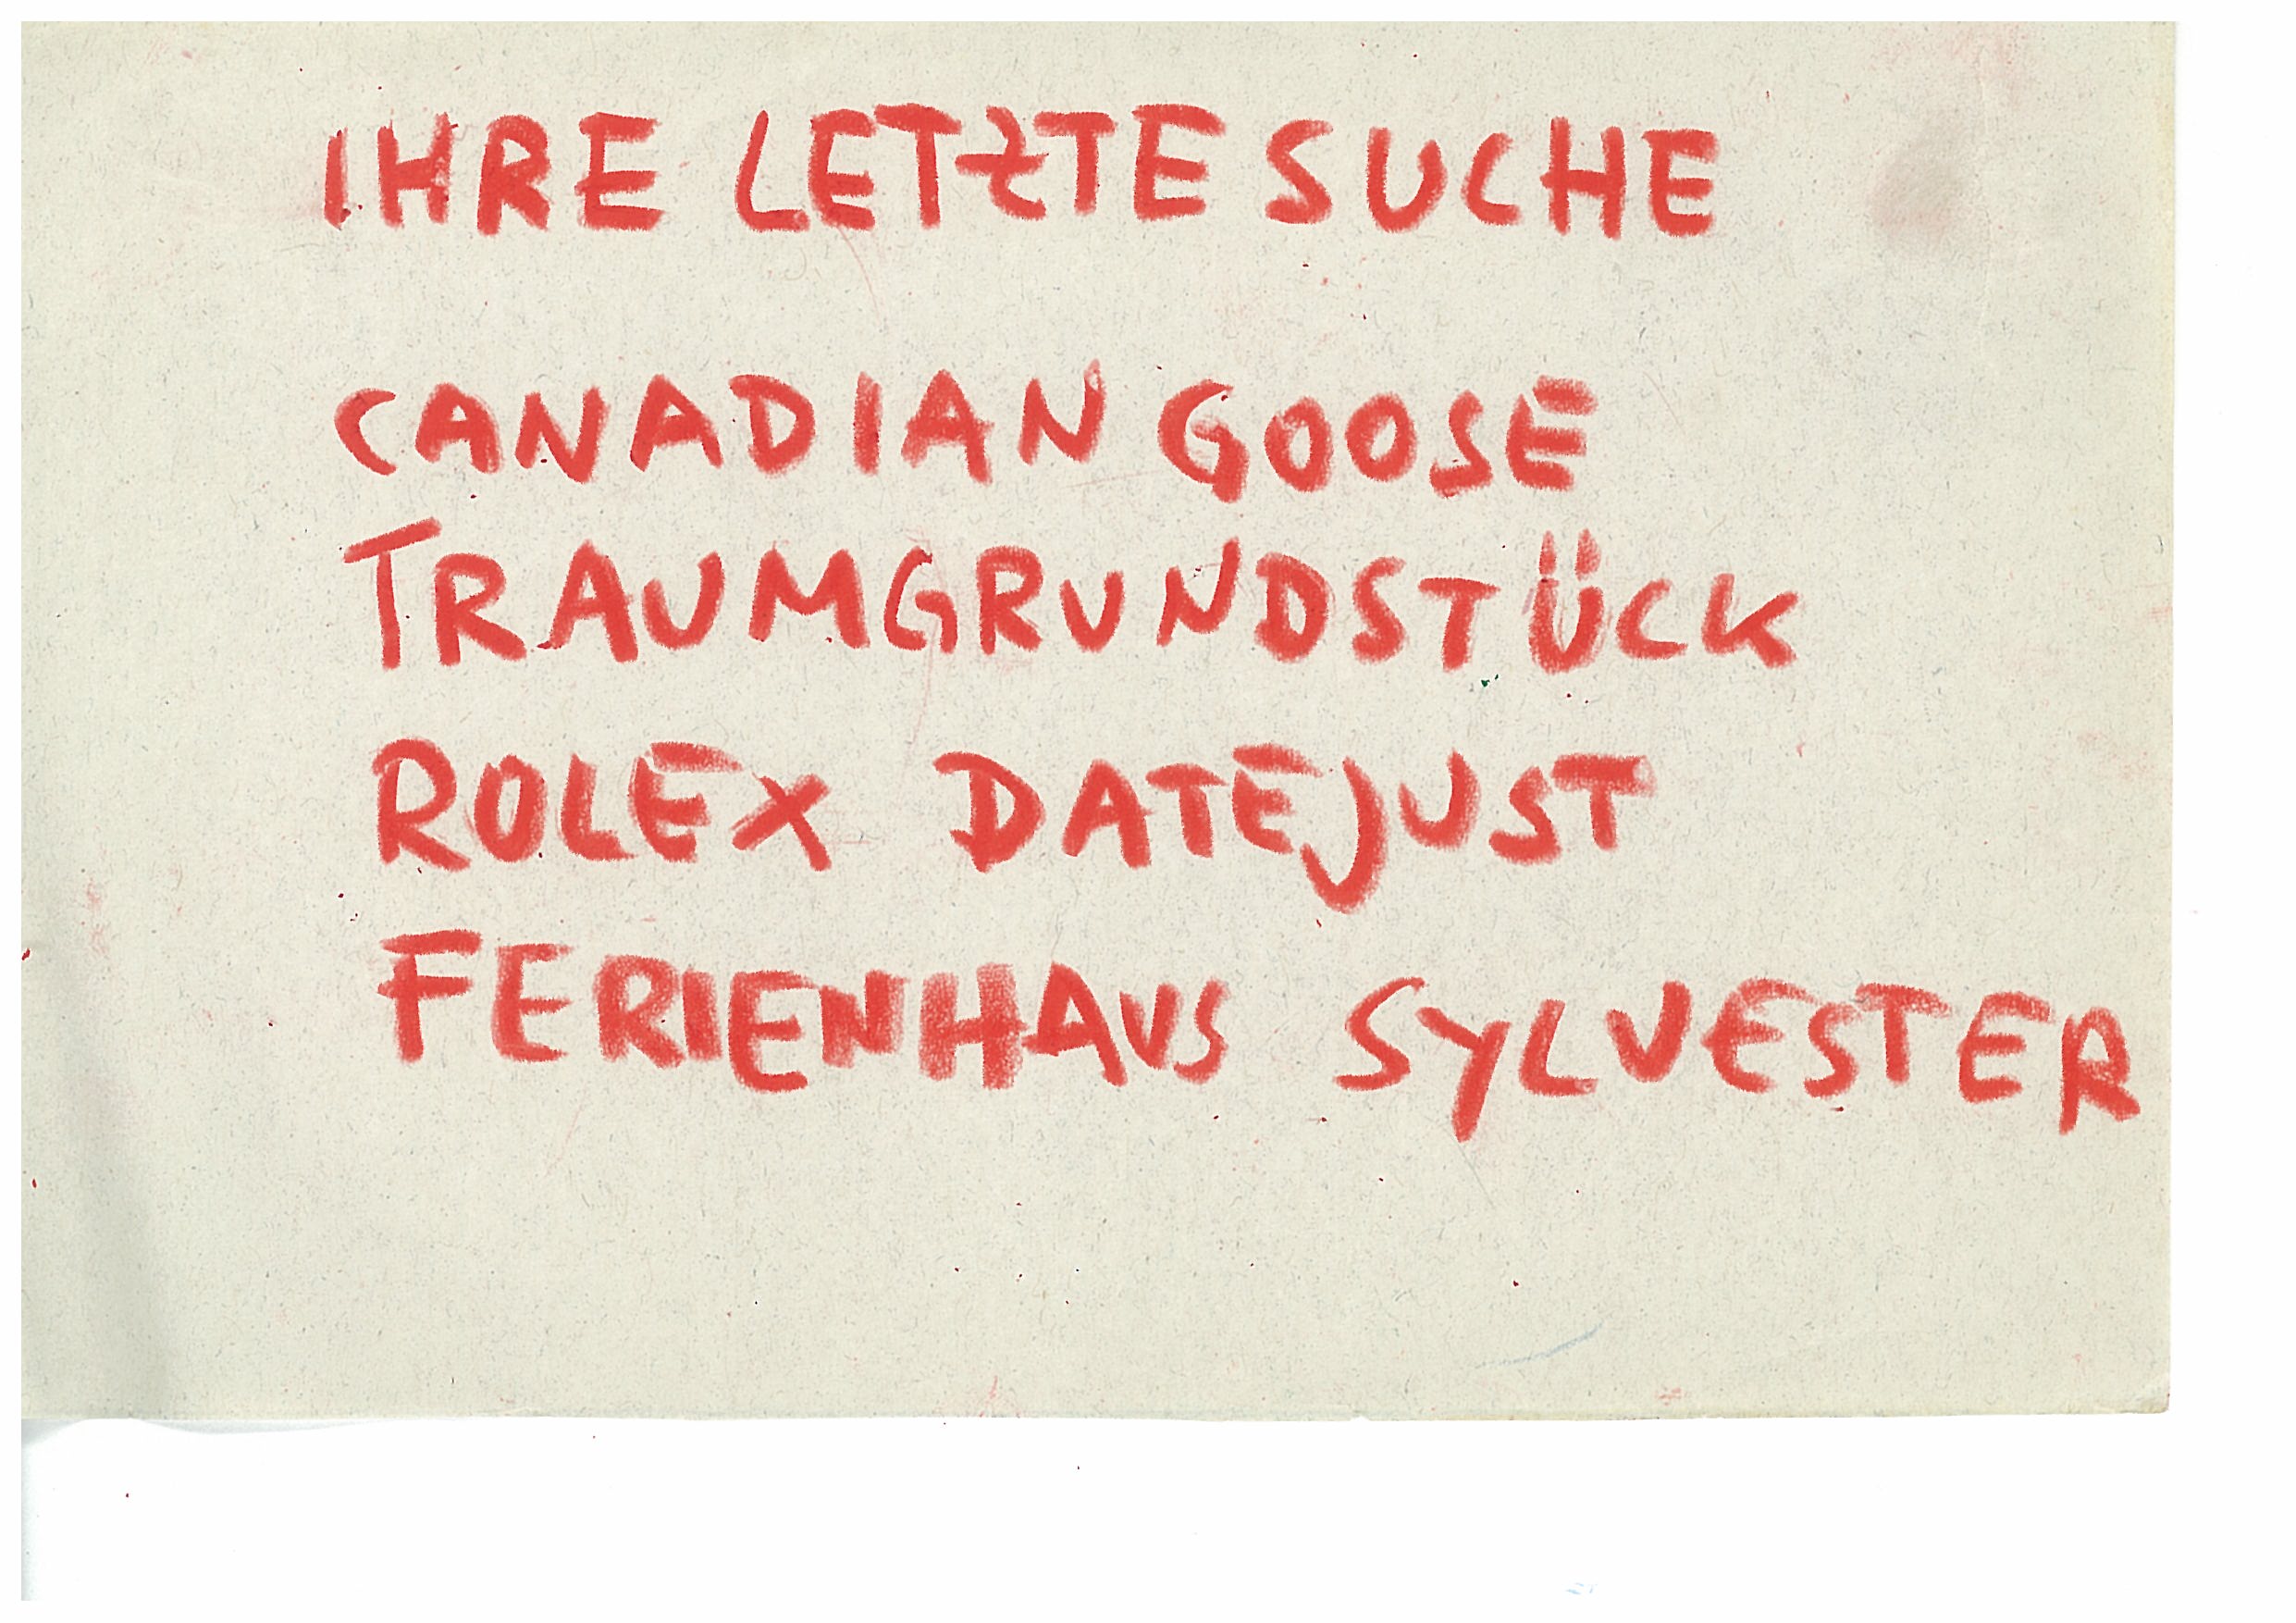 IHRE LETZTE SUCHE
CANADIAN GOOSE
TRAUMGRUNDSTÜCK
ROLEX DATEJUST
FERIENHAUS SYLVESTER